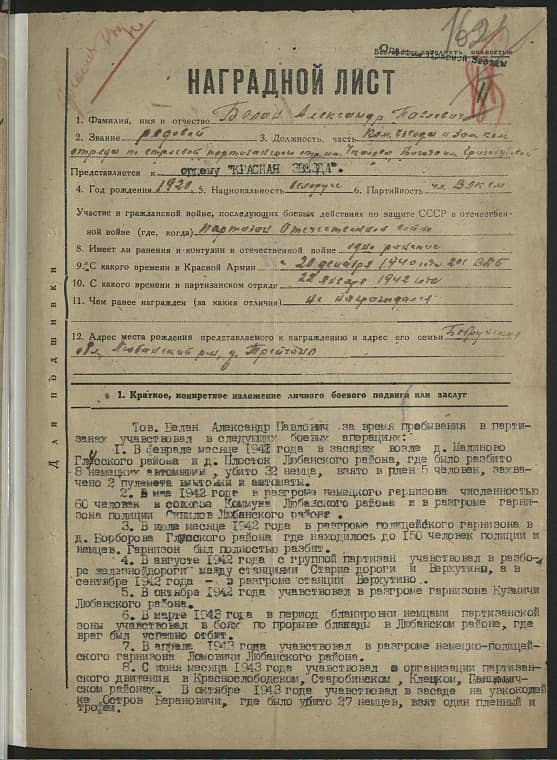 162
Орден Красной Звезды
11
НАГРАДНОЙ ЛИСТ
1. Фамилия, имя и отчество Белан Александр Павлович
2. Звание рядовой 3. Должность, часть Ком. взвода и зам ком
отряда по строевой партизанского отр.
Представляется к ордену "КРАСНАЯ ЗВЕЗДА".
4. Год рождения 1920 5. Национальность белорус 6. Партийность чл. ВЛКСМ
Участие в гражданской войне, последующих боевых действиях по защите СССР в отечествен-
ной войне (где, когда) партизан Отечественной войны
8. Имеет ли ранения и контузии в отечественной войне одно ранение
9. С какого времени в Красной Армии с 20 декабря 1940 года
10. С какого времени в партизанском отряде 22 января 1942 года
11. Чем ранее награжден (за какия отличия) не награждался
12. Адрес места рождения представляемого к награждению и адрес его семьи Бобруйская
обл Любанский р-н, д.
Для подшивки
1. Краткое, конкретное изложение личного боевого подвига или заслуг
Тов. Белан Александр Павлович за время пребывания в парти-
занах учавствовал в следующих боевых аперациях:
1. В феврале месяце 1942 года в засадах возле д. Малиново
Глусского района и д. Плосток Любанского района, где было разбито
8 немецких автомашин, убито 32 немца, взято в плен 5 человек, захва-
чено 2 пулемета винтовки и автоматы.
2. В мае 1942 года в разгроме немецкого гарнизона численностью
60 человек в совхозе Коммуна Любанского района и в разгроме гарни-
зона полиции Любанского района.
3. В июле месяце 1942 года в разгроме полицейского гарнизона в
д. Борборова Глусского района где находилось до 150 человек полиции и
немцев. Гарнизон был полностью разбит.
4. В августе 1942 года с группой партизан учавствовал в разбо-
ре железнойдороги между станциями Старие дороги и Верхутино, а в
сентябре 1942 года - в разгроме станции Верхутино.
5. В октябре 1942 года учавствовал в разгроме гарнизона Кузмичи
Любанского района.
6. В марте 1943 года в период блакировки немцами партизанской
зоны учавствовал в боях по прорыве блакады в Любанском районе, где
враг был успешно отбит.
7. В апреле 1943 года учавствовал в разгроме немецко-полицей-
ского гарнизона Ломовичи Любанского района.
8. С июня месяца 1943 года учавствовал в организации партизан-
ского движения в Краснослободском, Старобинском, Клецком, Ганцевич-
ском районах. В октябре 1943 года учавствовал в засаде на узкоколей
ке Остров Барановичи, где было убито 27 немцев, взят один пленный и
трофеи.